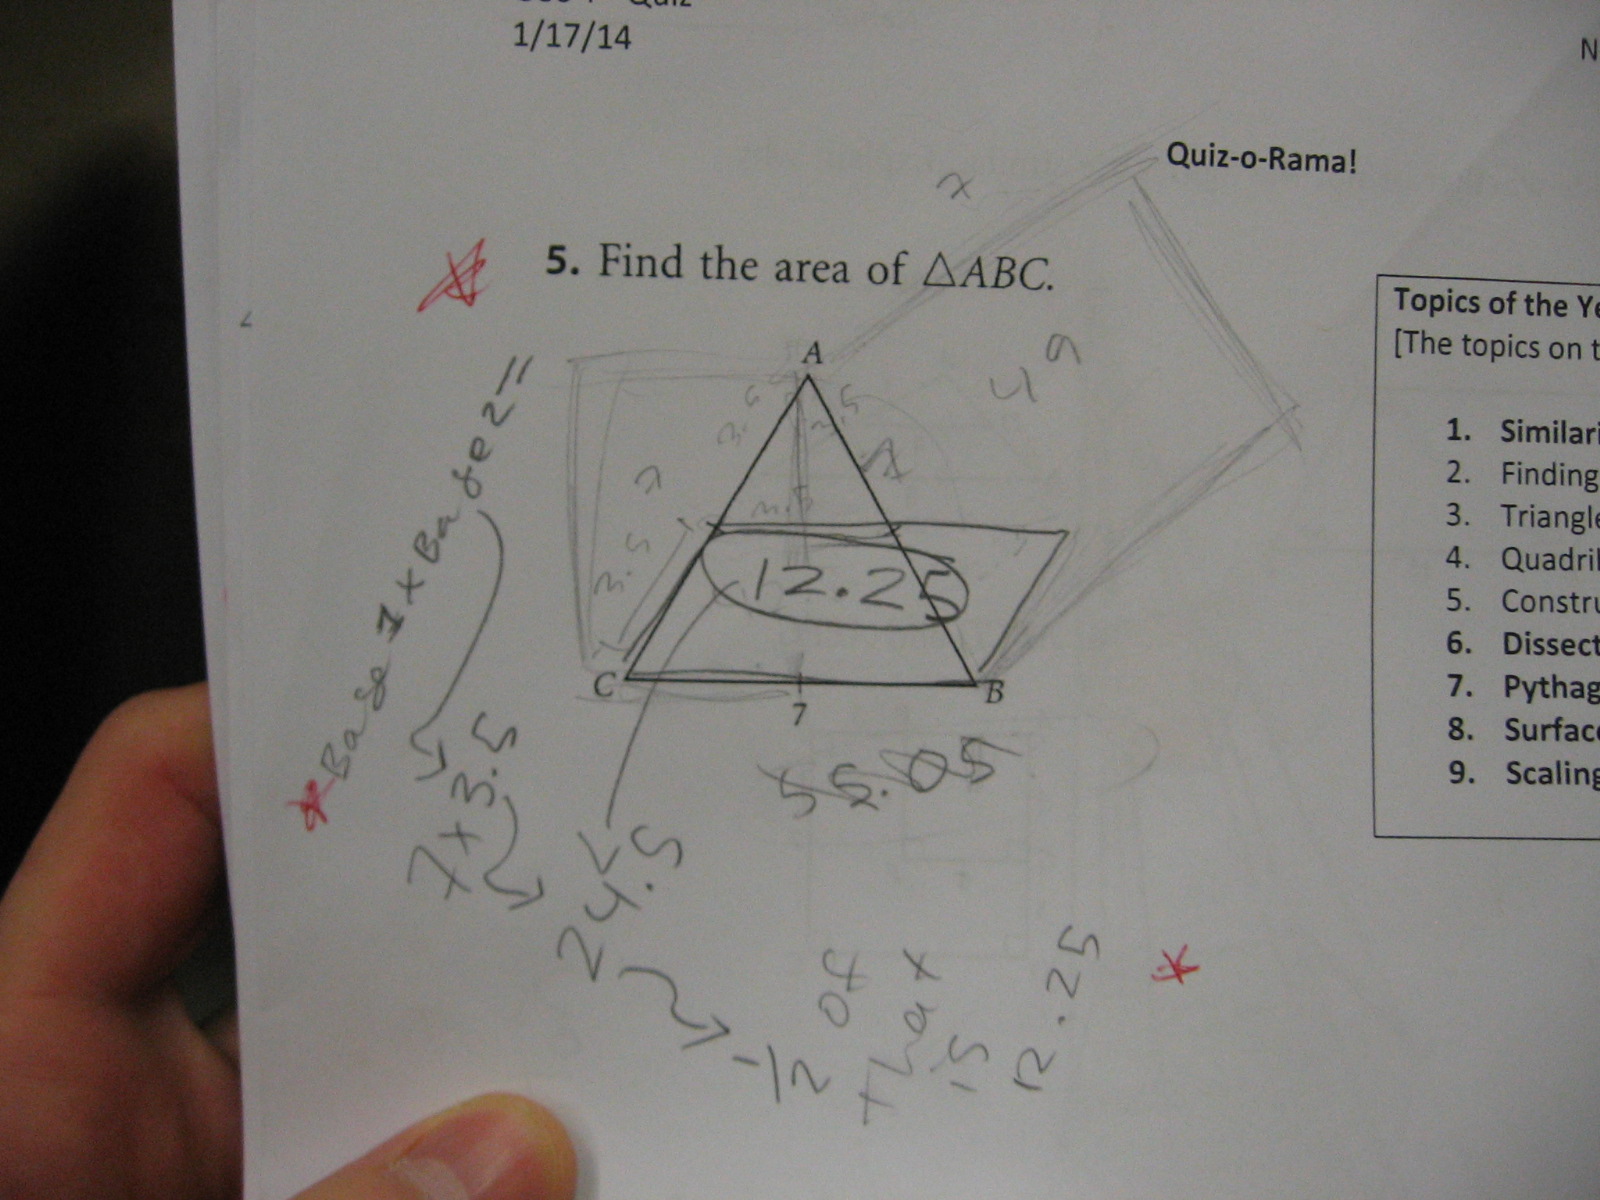 1/17/14
Quiz-o-Rama!
5. Find the area of △ABC.
x
49
A
7
7
3.5
3.5
3.5
12.25
C
B
7
55.05
Base 1 x Base 2 =
7 x 3.5
24.5
1/2 of that is 12.25
Topics of the
[The topics on
1. 
2. Finding
3. 
4. 
5. 
6. 
7. 
8. 
9. Scaling